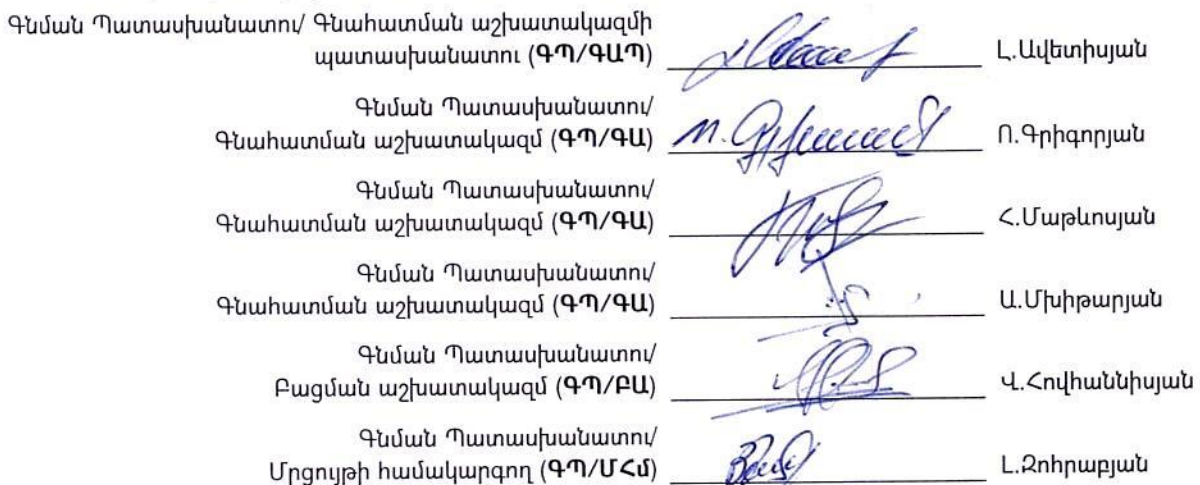 Գնման Պատասխանատու/ Գնահատման աշխատակազմի
պատասխանատու (ԳՊ/ԳԱՊ) Լ.Ավետիսյան
Գնման Պատասխանատու/
Գնահատման աշխատակազմ (ԳՊ/ԳԱ) Ո.Գրիգորյան
Գնման Պատասխանատու/
Գնահատման աշխատակազմ (ԳՊ/ԳԱ) Հ.Մաթևոսյան
Գնման Պատասխանատու/
Գնահատման աշխատակազմ (ԳՊ/ԳԱ) Ա.Մխիթարյան
Գնման Պատասխանատու/
Բացման աշխատակազմ (ԳՊ/ԲԱ) Վ.Հովհաննիսյան
Գնման Պատասխանատու/
Մրցույթի համակարգող (ԳՊ/ՄՀմ) Լ.Զոհրաբյան